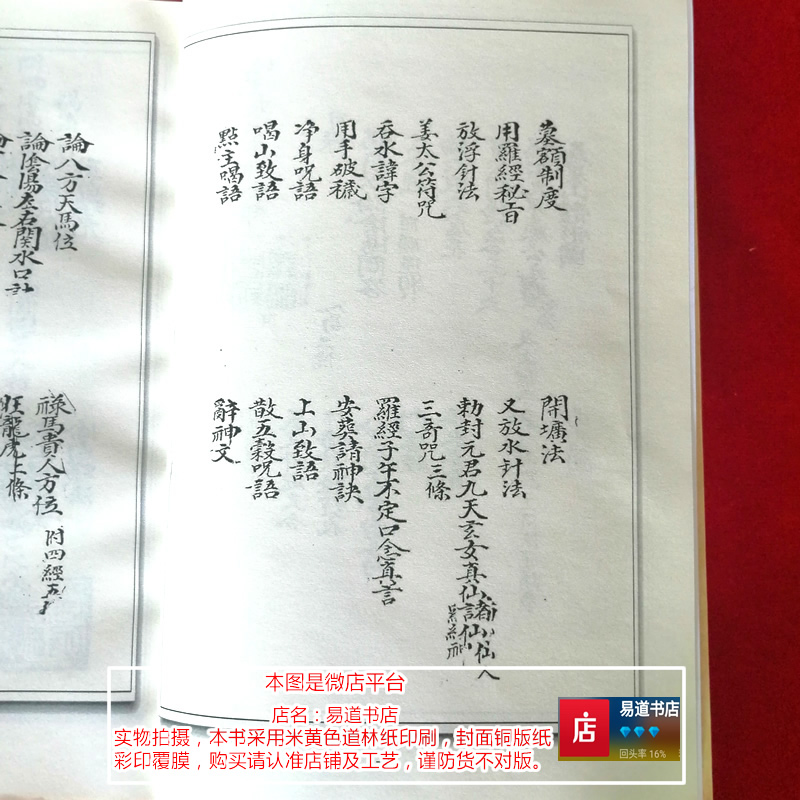 墓額制度
開壙法
用羅經秘旨
又放水針法
放浮針法
勅封元君九天玄女真仙諸仙
仙人
姜太公符咒
三奇咒三條
吞水諱字
羅經子午不定口念真言
用手破穢
安葬請神訣
净身呪語
上山致語
喝山致語
散五穀呪語
點主喝語
辭神文
論八方天馬位
祿馬貴人方位 附四經五
論陰陽左右關水口
旺龍虎上條
本图是微店平台
店名：易道书店
实物拍摄，本书采用米黄色道林纸印刷，封面铜版纸
彩印覆膜，购买请认准店铺及工艺，谨防货不对版。
店
易道书店
回头率 16%